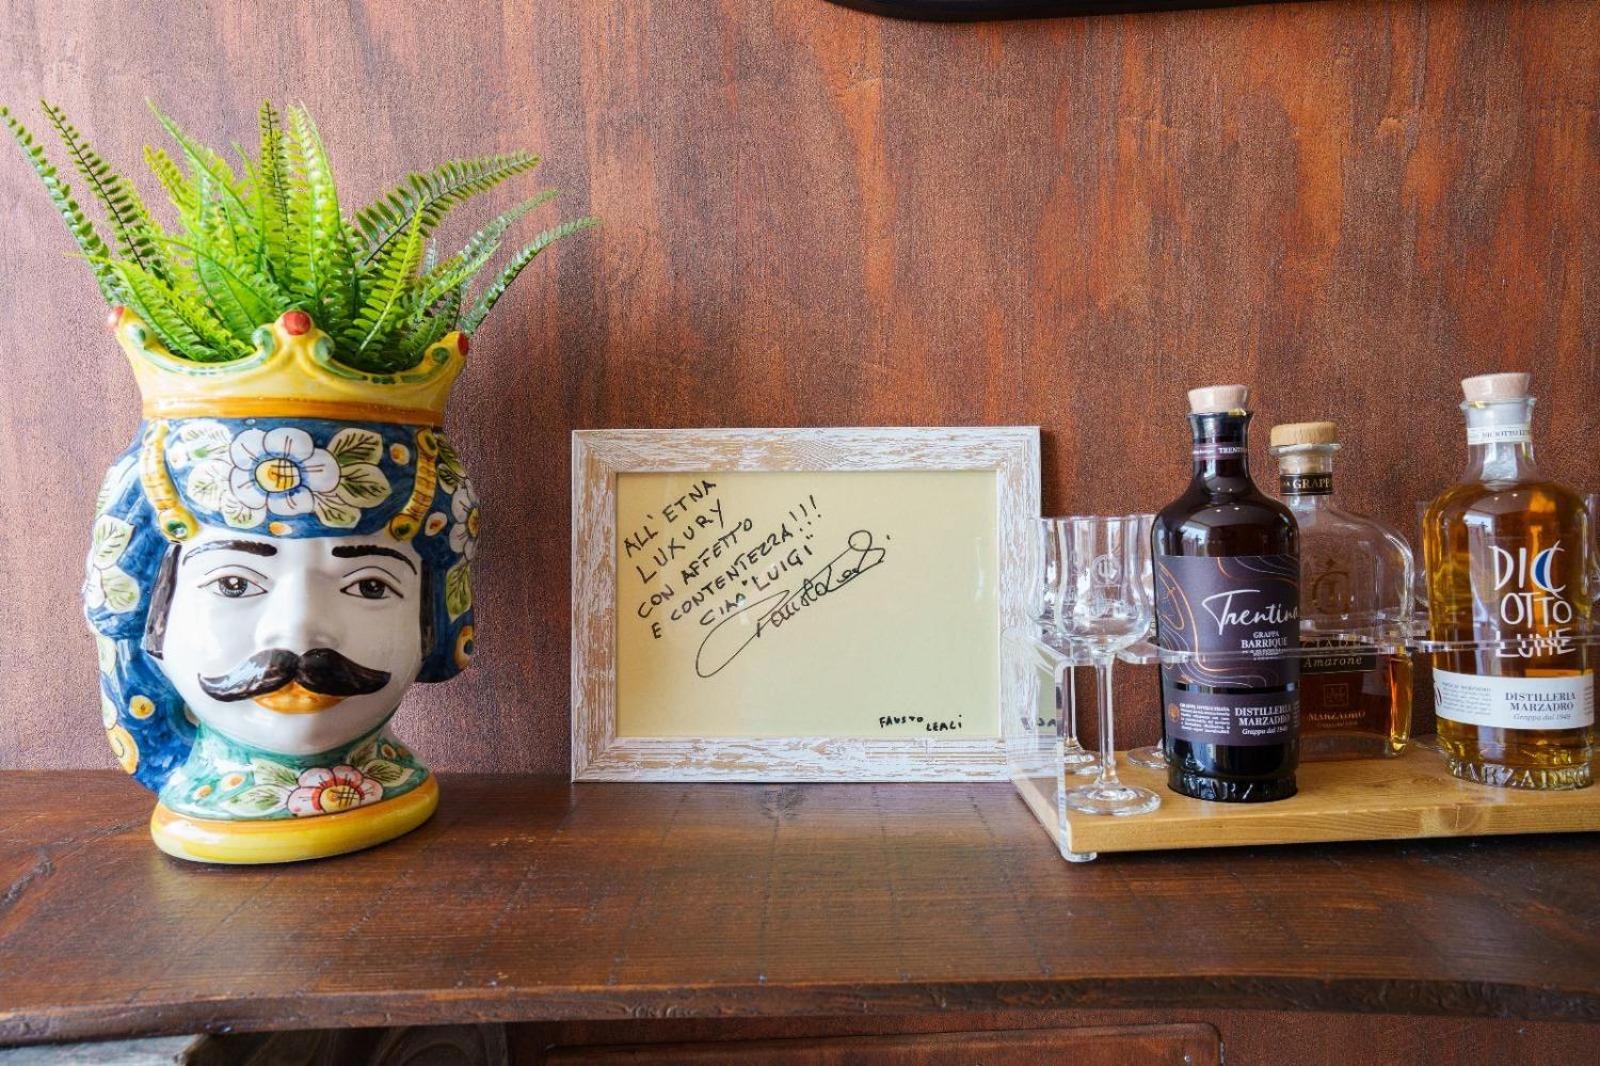 ALL'ETNA
LUXURY
CON AFFETTO
E CONTENTEZZA!!!
CIAO "LUIGI"
Fausto Leali
FAUSTO
LEALI
TRENTIN
Trentina
GRAPPA
BARRIQUE
DISTILLERIA
MARZADRO
Grappa dal 1949
GRAPP
Amarone
MARZADRO
DICIOTTO LU
DIC
OTTO
LUNE
DISTILLERIA
MARZADRO
Grappa dal 1949
MARZADRO